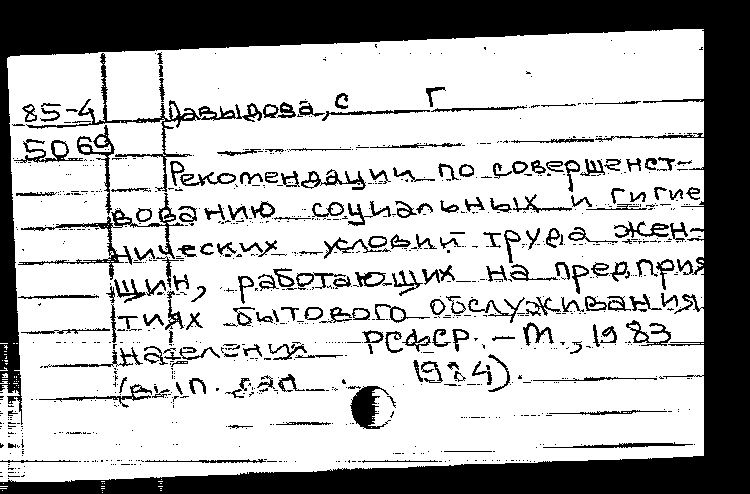 85-4 Давыдова, с Г
5069
Рекомендации по совершенст-
вованию социальных и гигие
нических условий труда жен-
щин, работающих на предприя
тиях бытового обслуживания
населения РСФСР. - М., 1983
(вып. дан. 1984).